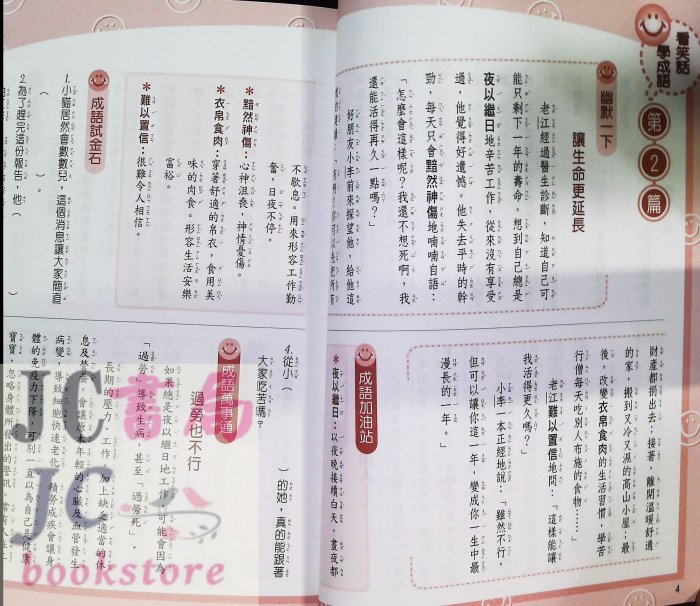 看笑話
學成語
第2篇
幽默一下
讓生命更延長
老江經過醫生診斷，知道自己可
能只剩下一年的壽命，想到自己總是
夜以繼日地辛苦工作，從來沒有享受
過，他覺得好遺憾。他失去平時的幹
勁，每天只會黯然神傷地喃喃自語：
「怎麼會這樣呢？我還不想死啊，我
還能活得再久一點嗎？」
好朋友小李前來探望他，給他這
財產都捐出去；接著，離開溫暖舒適
的家，搬到又冷又濕的高山小屋；最
後，改變衣帛食肉的生活習慣，學苦
行僧每天吃別人布施的食物……」
老江難以置信地問：「這樣能讓
我活得更久嗎？」
小李一本正經地說：「雖然不行，
但可以讓你這一年，變成你一生中最
漫長的一年。」
4
成語加油站
＊夜以繼日：以夜晚接續白天，晝夜都
不歇息。用來形容工作勤
奮，日夜不停。
＊黯然神傷：心神沮喪，神情憂傷。
＊衣帛食肉：穿著舒適的帛衣，食用美
味的肉食。形容生活安樂
富裕。
＊難以置信：很難令人相信。
成語試金石
1.小貓居然會數數兒，這個消息讓大家簡直
（　）。
2.為了趕完這份報告，他（　）
4.從小（　）的她，真的能跟著
大家吃苦嗎？
成語萬事通
過勞也不行
如果總是夜以繼日地工作，可能會因為
「過勞」導致生病，甚至「過勞死」。
長期的壓力、工作，加上缺乏適當的休
息及營養，會讓原本年輕的心臟及血管發生
病變，導致細胞快速老化，積勞成疾會讓身
體的免疫力下降，可別一直以為自己
寶寶，忽略身體所發出的警訊。
JC書局
JC
bookstore